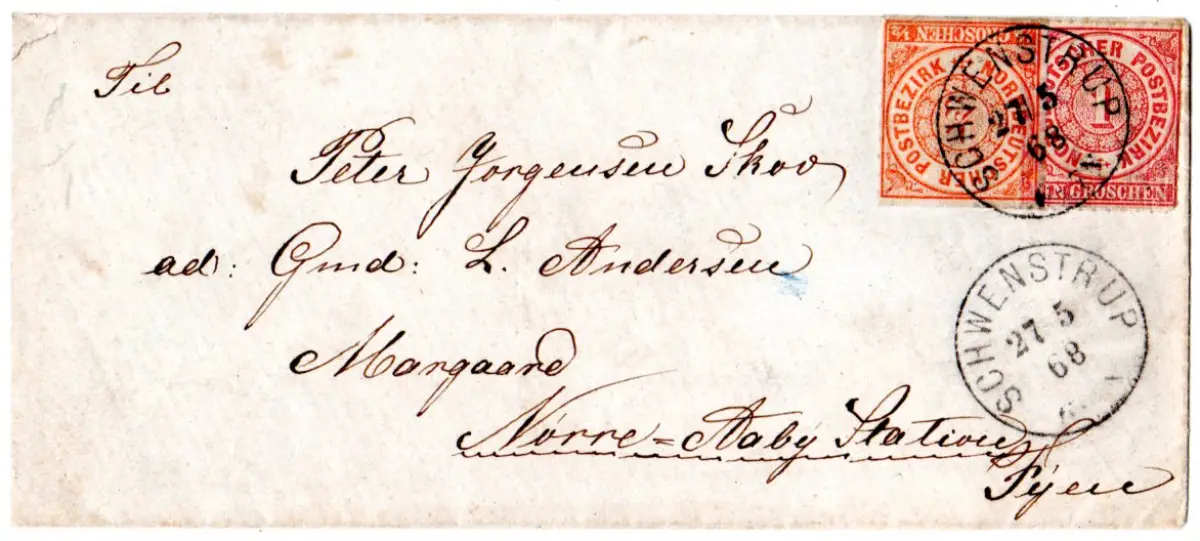 Til
Peter Jørgensen Skov
ad: Gmd: L. Andersen
Margaard
Nörre=Aaby Station
Fÿen
½ GROSCHEN
NORDDEUTSCHER POSTBEZIRK
NORDDEUTSCHER POSTBEZIRK
1
EIN GROSCHEN
SCHWENSTRUP
27 5
68
SCHWENSTRUP
27 5
68